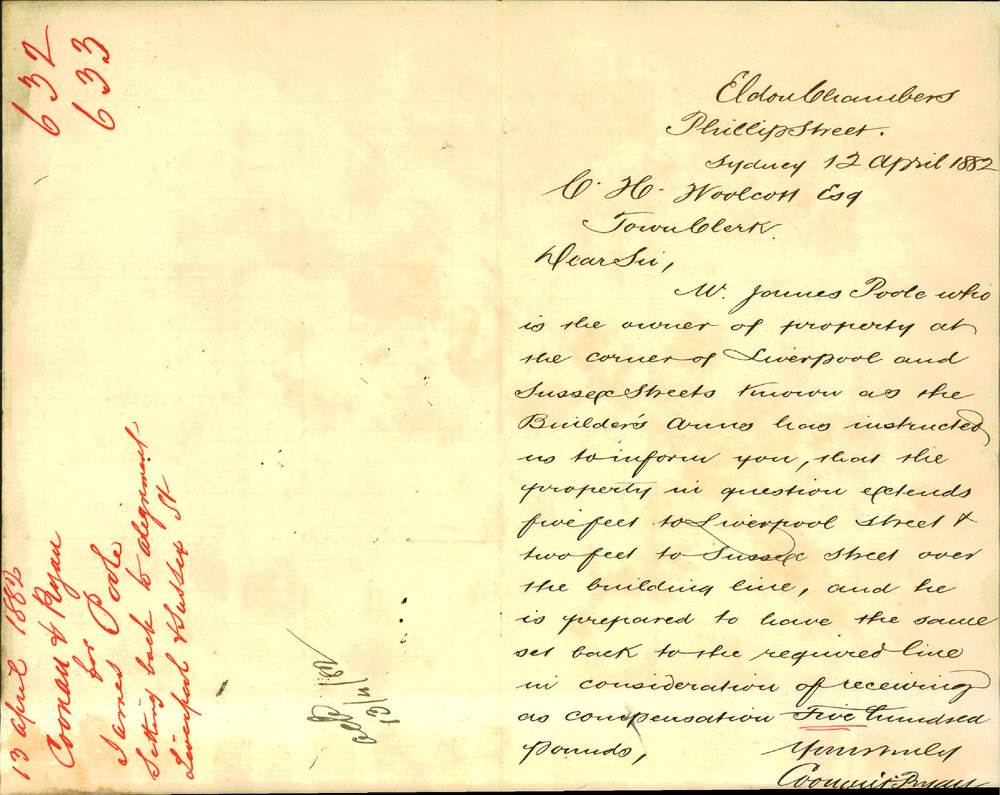 632
633
13 April 1882
Coonan & Ryan
for
James Poole
Setting back to alignment
Liverpool & Sussex St
13/4/82
Eldon Chambers
Phillip Street.
Sydney 12 April 1882
C. H. Woolcott Esq
Town Clerk
Dear Sir,
Mr. James Poole who
is the owner of property at
the corner of Liverpool and
Sussex Streets known as the
Builder's Arms has instructed
us to inform you, that the
property in question extends
five feet to Liverpool Street &
two feet to Sussex Street over
the building line, and he
is prepared to have the same
set back to the required line
in consideration of receiving
as compensation Five hundred
pounds,
Yours truly
Coonan & Ryan